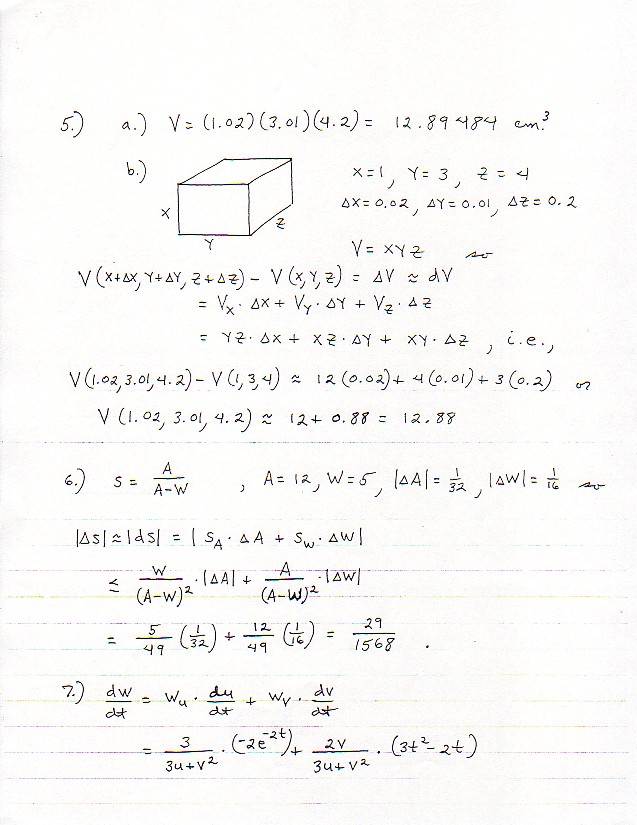 5.) a.) V = (1.02)(3.01)(4.2) = 12.89484 cm.³
b.) X=1, Y=3, Z=4
X
Y
Z
ΔX=0.02, ΔY=0.01, ΔZ=0.2
V = XYZ so
V(X+ΔX, Y+ΔY, Z+ΔZ) - V(X,Y,Z) = ΔV ≈ dV
= V_X · ΔX + V_Y · ΔY + V_Z · ΔZ
= YZ · ΔX + XZ · ΔY + XY · ΔZ , i.e.,
V(1.02,3.01,4.2) - V(1,3,4) ≈ 12(0.02) + 4(0.01) + 3(0.2) or
V(1.02, 3.01, 4.2) ≈ 12 + 0.88 = 12.88
6.) S = A/(A-W) , A=12, W=5, |ΔA| = 1/32, |ΔW| = 1/16 so
|ΔS| ≈ |dS| = | S_A · ΔA + S_W · ΔW |
≤ W/(A-W)² · |ΔA| + A/(A-W)² · |ΔW|
= 5/49 (1/32) + 12/49 (1/16) = 29/1568 .
7.) dw/dt = W_u · du/dt + W_v · dv/dt
= 3/(3u+v²) · (-2e^(-2t)) + 2v/(3u+v²) · (3t²-2t)